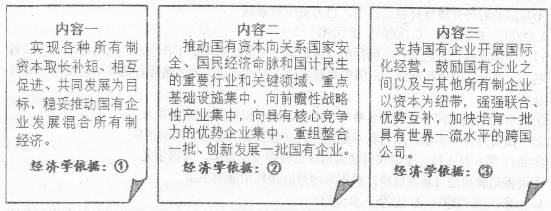 内容一
实现各种所有制
资本取长补短、相互
促进、共同发展为目
标，稳妥推动国有企
业发展混合所有制
经济。
经济学依据：①
内容二
推动国有资本向关系国家安
全、国民经济命脉和国计民生
的重要行业和关键领域、重点
基础设施集中，向前瞻性战略
性产业集中，向具有核心竞争
力的优势企业集中，重组整合
一批、创新发展一批国有企业。
经济学依据：②
内容三
支持国有企业开展国际
化经营，鼓励国有企业之
间以及与其他所有制企业
以资本为纽带，强强联合、
优势互补，加快培育一批
具有世界一流水平的跨国
公司。
经济学依据：③